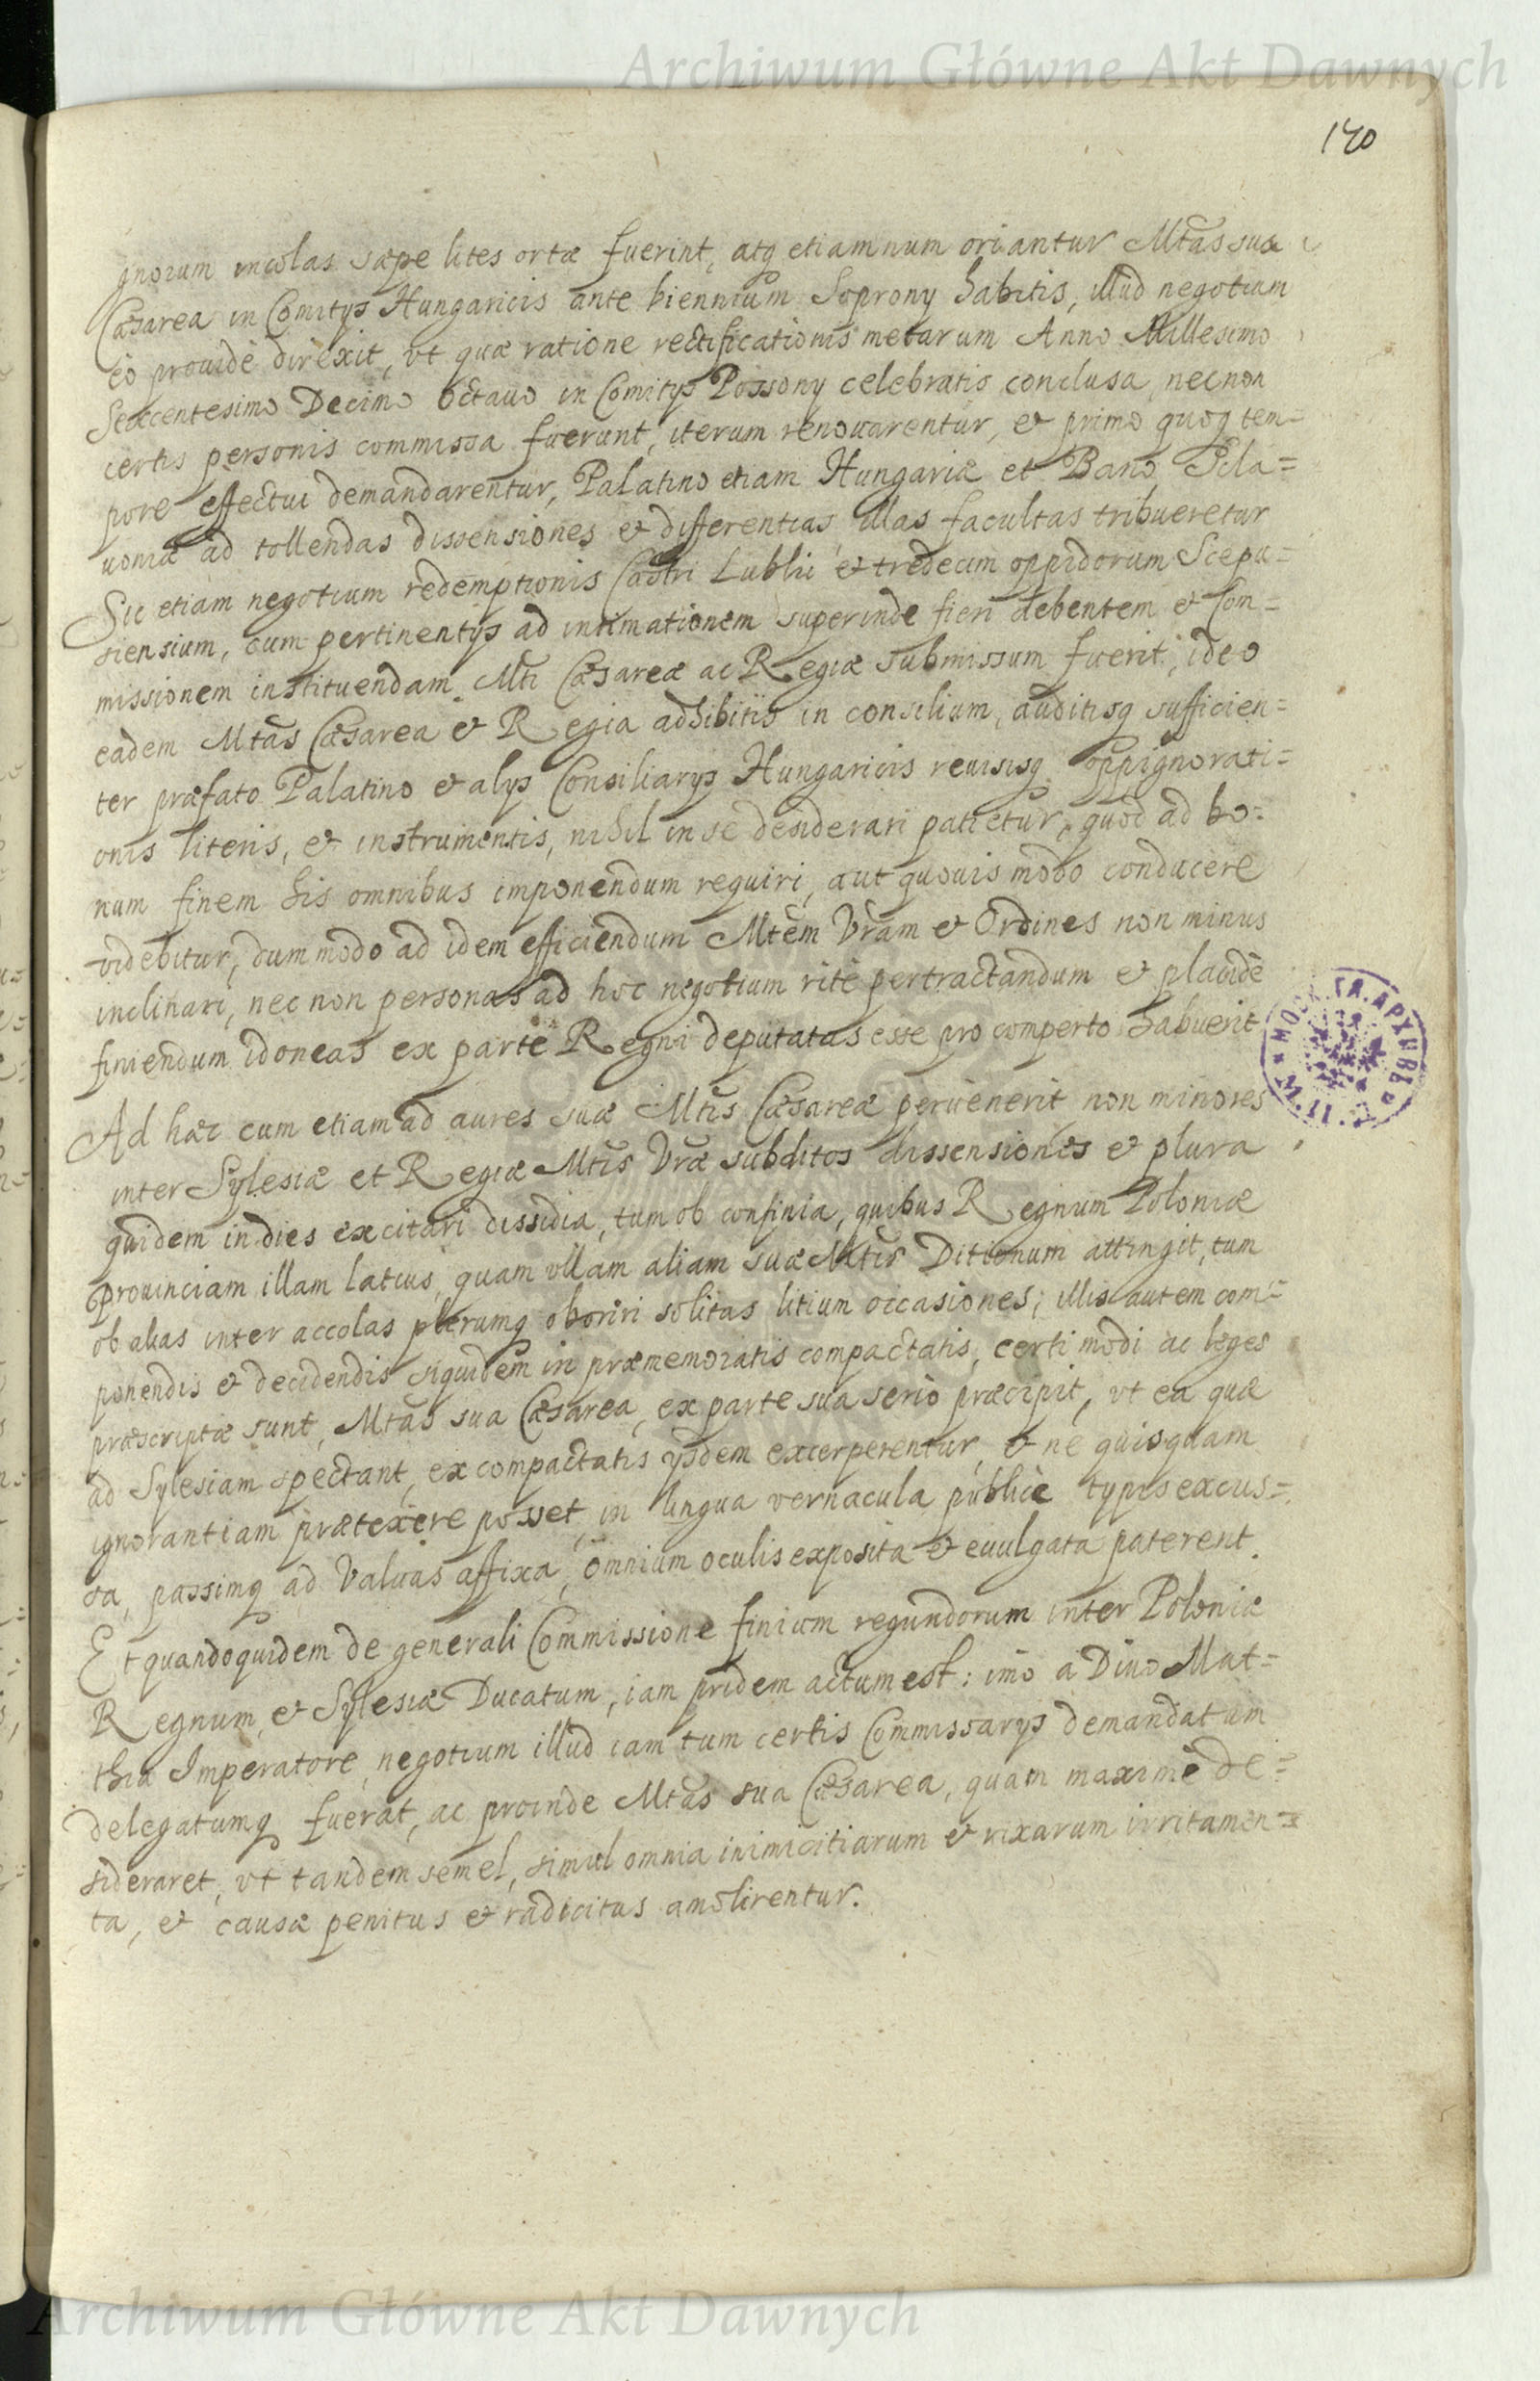 Archiwum Główne Akt Dawnych
170
gnorum incolas sæpe lites ortæ fuerint, atq etiamnum oriantur Mtas sua
Cæsarea in Comitys Hungaricis ante biennium Soprony habitis, illud negotium
eò prouidè direxit, vt quæ ratione rectificationis metarum Anno Millesimo
Sexcentesimo Decimo Octauo in Comitys Possony celebratis conclusa, necnon
certis personis commissa fuerunt, iterum renouarentur, et primo quoq tem=
pore effectui demandarentur, Palatino etiam Hungariæ et Bano Scla=
uoniæ ad tollendas dissensiones et differentias illas facultas tribueretur
Sic etiam negotium redemptionis Castri Lublii et tredecim oppidorum Scepu=
siensium, cum pertinentys ad intimationem superinde fieri debentem et Com=
missionem instituendam Mti Cæsareæ ac Regiæ submissum fuerit, ideo
eadem Mtas Cæsarea et Regia adhibitis in consilium, auditisq sufficien=
ter præfato Palatino et alys Consiliarys Hungaricis reuisisq oppignorati=
onis literis, et instrumentis, nihil in se desiderari patietur, quod ad bo=
num finem his omnibus imponendum requiri, aut quouis modo conducere
videbitur, dummodo ad idem efficiendum Mtem Vram et Ordines non minus
inclinari, nec non personas ad hoc negotium ritè pertractandum et placidè
finiendum idoneas ex parte Regni deputatas esse pro comperto habuerit
Ad hæc cum etiam ad aures suæ Mtis Cæsareæ peruenerit non minores
inter Sylesiæ et Regiæ Mtis Vræ subditos dissensiones et plura
quidem indies excitari dissidia, tum ob confinia, quibus Regnum Poloniæ
prouinciam illam latius, quam vllam aliam suæ Mtis Ditionum attingit, tum
ob alias inter accolas plerumq oboriri solitas litium occasiones; illis autem com=
ponendis et decidendis siquidem in præmemoratis compactatis, certi modi ac leges
præscriptæ sunt, Mtas sua Cæsarea, ex parte sua serio præcipit, vt ea quæ
ad Sylesiam spectant, ex compactatis ysdem excerperentur, et ne quisquam
ignorantiam prætexere posset, in lingua vernacula publicè typis excus=
sa, passimq ad Valuas affixa, omnium oculis exposita et euulgata paterent.
Et quandoquidem de generali Commissione finium regundorum inter Poloniæ
Regnum, et Sylesiæ Ducatum, iam pridem actum est: imò a Diuo Mat=
thia Imperatore, negotium illud iam tum certis Commissarys demandatum
delegatumq fuerat, ac proinde Mtas sua Cæsarea, quam maximè de=
sideraret, vt tandem semel, simul omnia inimicitiarum et rixarum irritamen=
ta, et causæ penitus et radicitus amolirentur.
Archiwum Główne Akt Dawnych